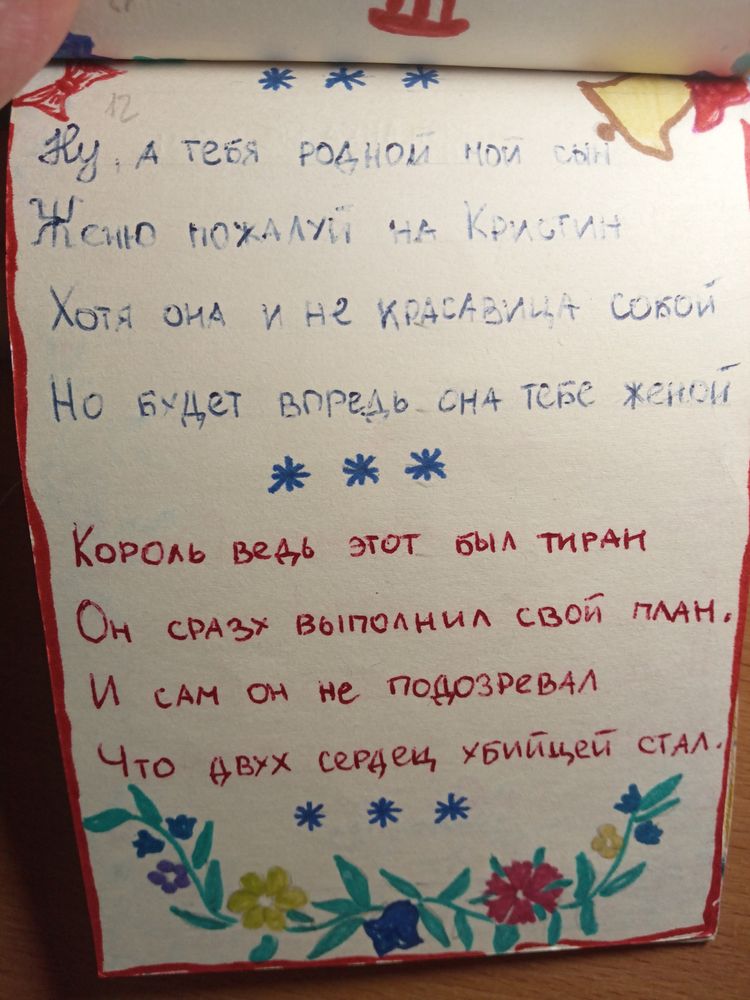 * * *
12
Ну, а тебя родной мой сын
Женю пожалуй на Кристин
Хотя она и не красавица собой
Но будет впредь она тебе женой
* * *
Король ведь этот был тиран
Он сразу выполнил свой план.
И сам он не подозревал
Что двух сердец убийцей стал.
* * *